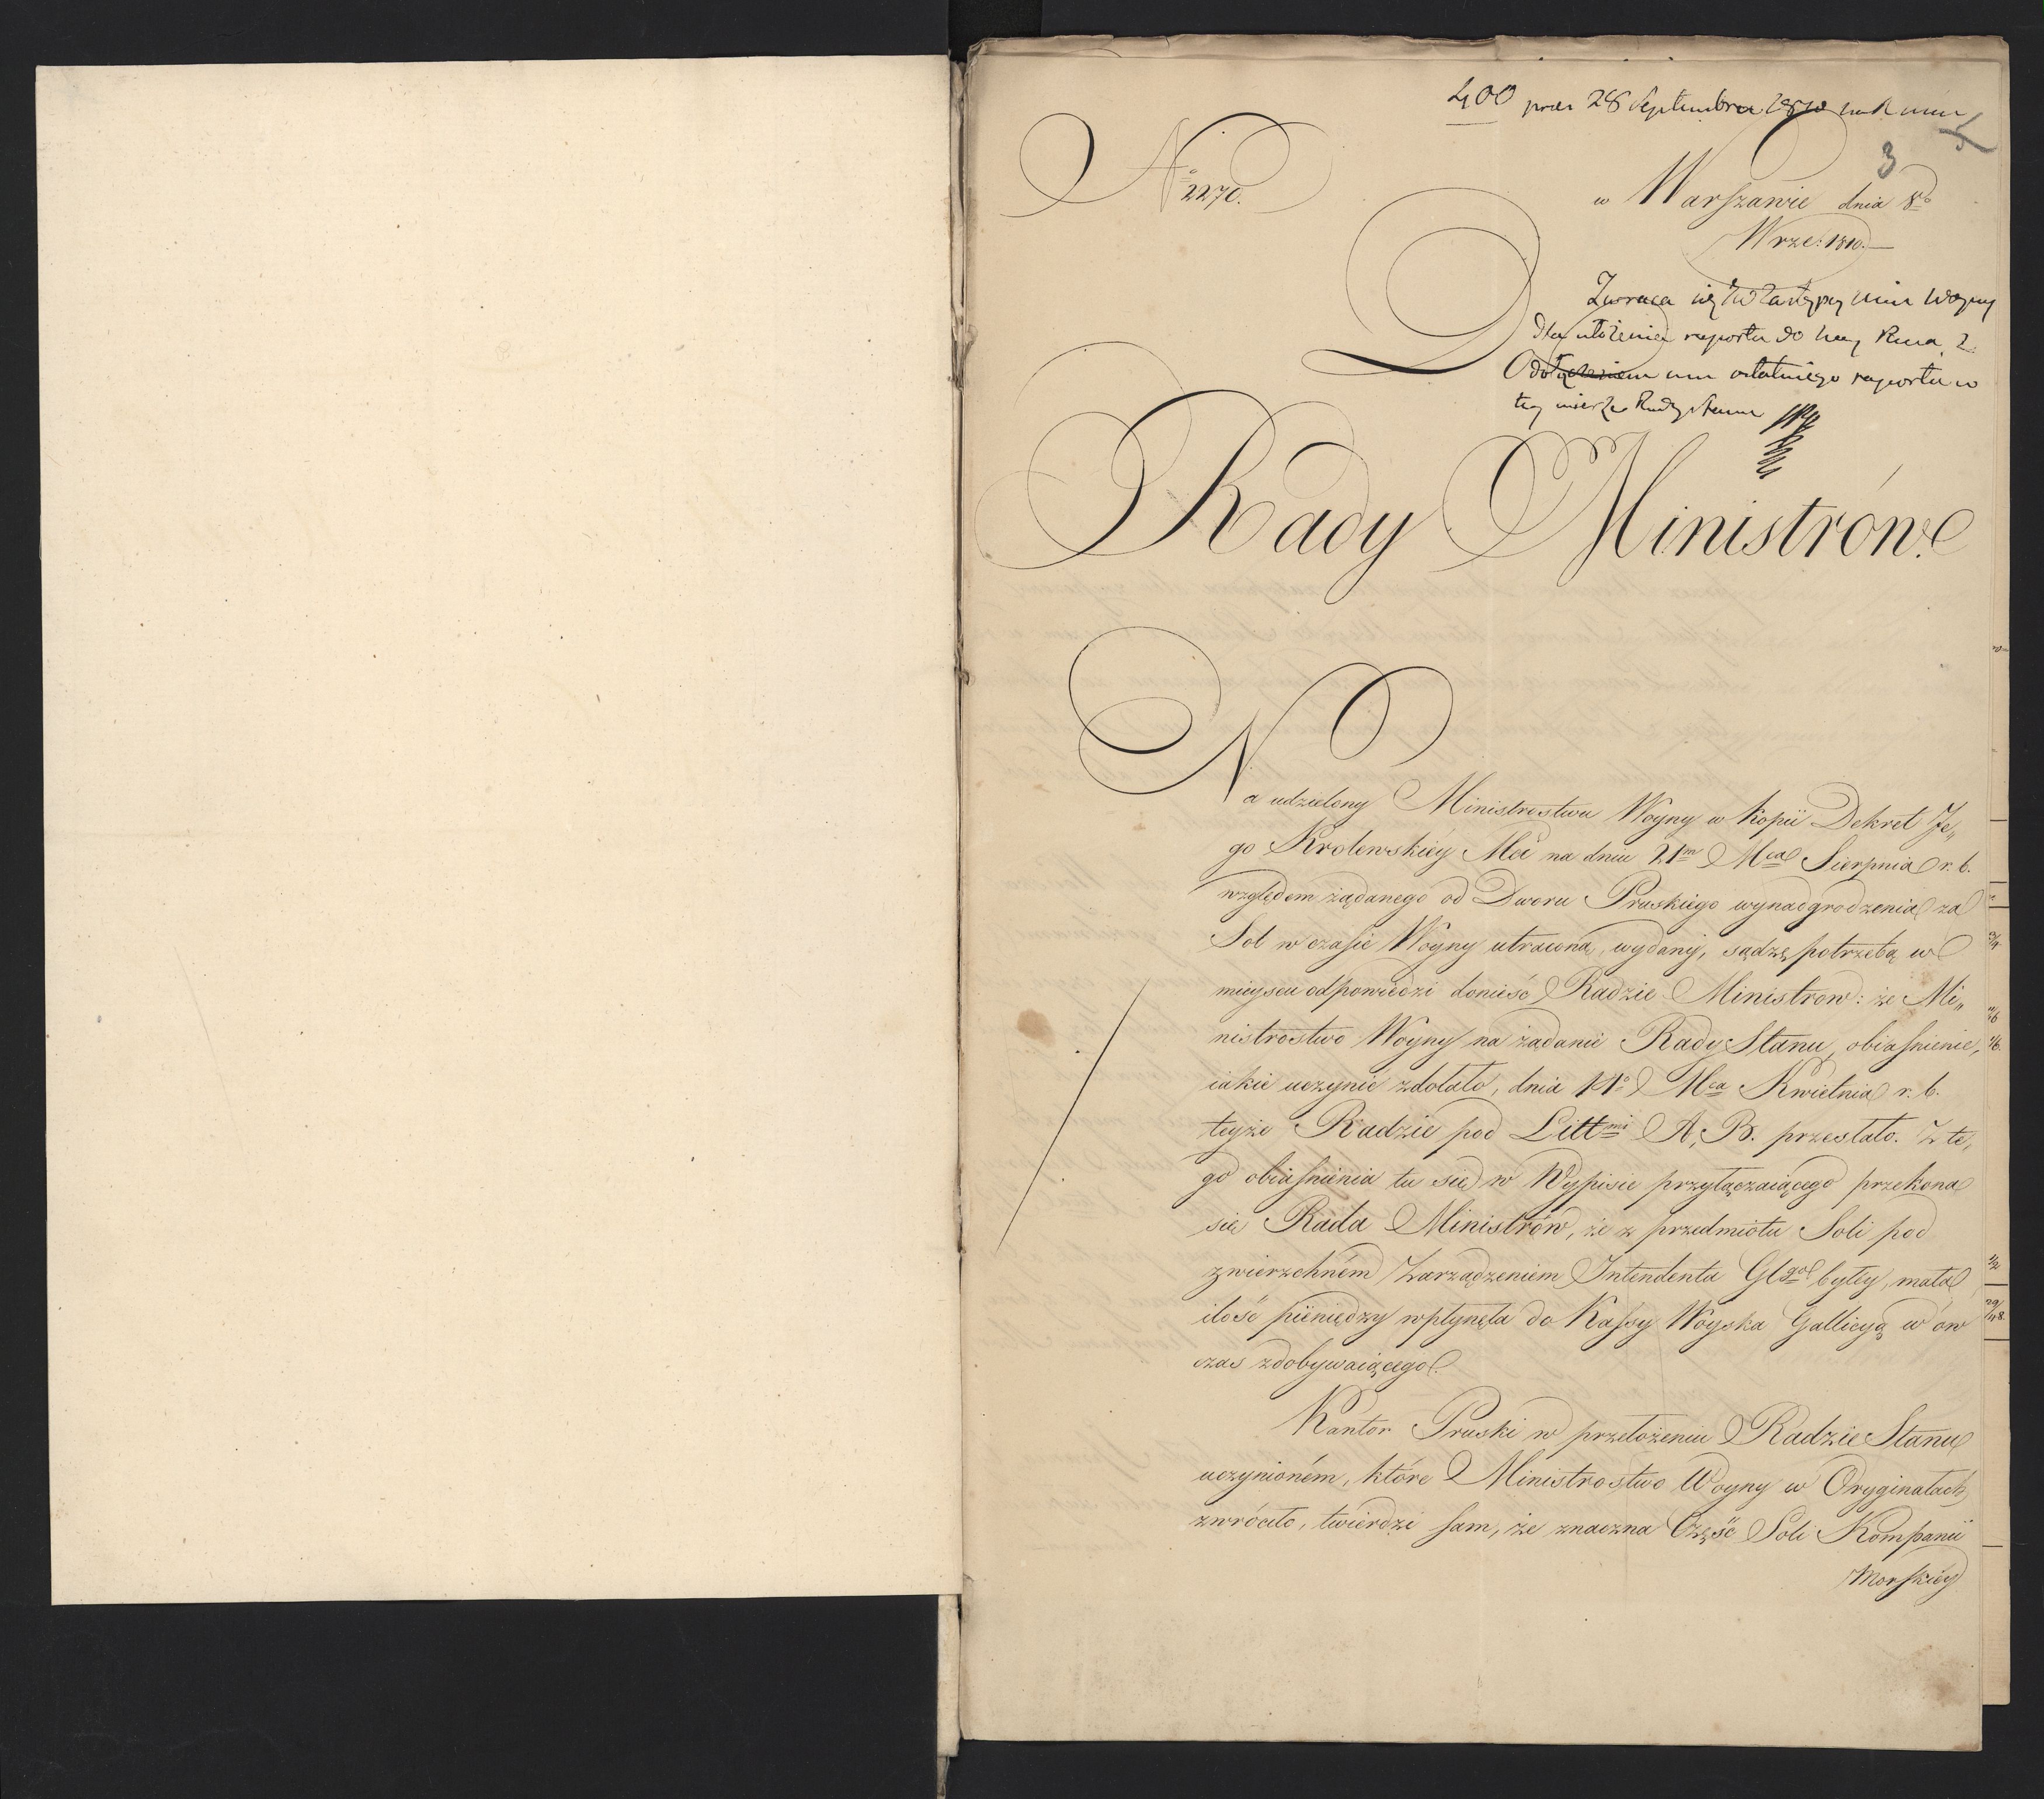 400 28 Septembra 1810
3
No 2270.
w Warszawie dnia 8go
Wrze: 1810.
Zwraca się Zastępcy Min Woyny
dla ułożenia raportu do
ostatniego raportu w
tey mierze Rady Stanu
Rady Ministrów.
Na udzielony Ministrostwu Woyny w Kopii Dekret Je„
go Krolewskiéy Mci na dniu 21m Mca Sierpnia r. b.
względem żądanego od Dworu Pruskiego wynadgrodzenia za
Sol w czasie Woyny utraconą, wydany, sądzę potrzebą w
mieyscu odpowiedzi donieść Radzie Ministrow: że Mi„
nistrostwo Woyny na żądanie Rady Stanu, obiaśnienie,
iakie uczynić zdołało, dnia 14o Mca Kwietnia r. b.
teyże Radzie pod Littmi A, B. przesłało. Z te„
go obiaśnienia tu się w Wypisie przyłączaiącego przekona
się Rada Ministrów, że z przedmiotu Soli pod
zwierzchném Zarządzeniem Intendenta Glgo byłey, mała
ilość pieniędzy wpłynęła do Kassy Woyska Gallicyą w ów
czas zdobywaiącego.
Kantor Pruski w przełożeniu Radzie Stanu
uczynioném, które Ministrostwo Woyny w Oryginałach
zwróciło, twierdzi sam, że znaczna Część Soli Kompanii
Morskiéy